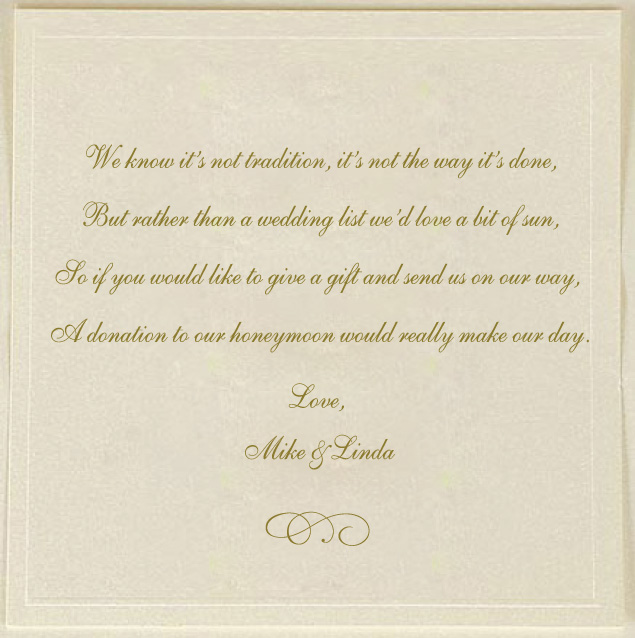 We know it's not tradition, it's not the way it's done,
But rather than a wedding list we'd love a bit of sun,
So if you would like to give a gift and send us on our way,
A donation to our honeymoon would really make our day.
Love,
Mike & Linda